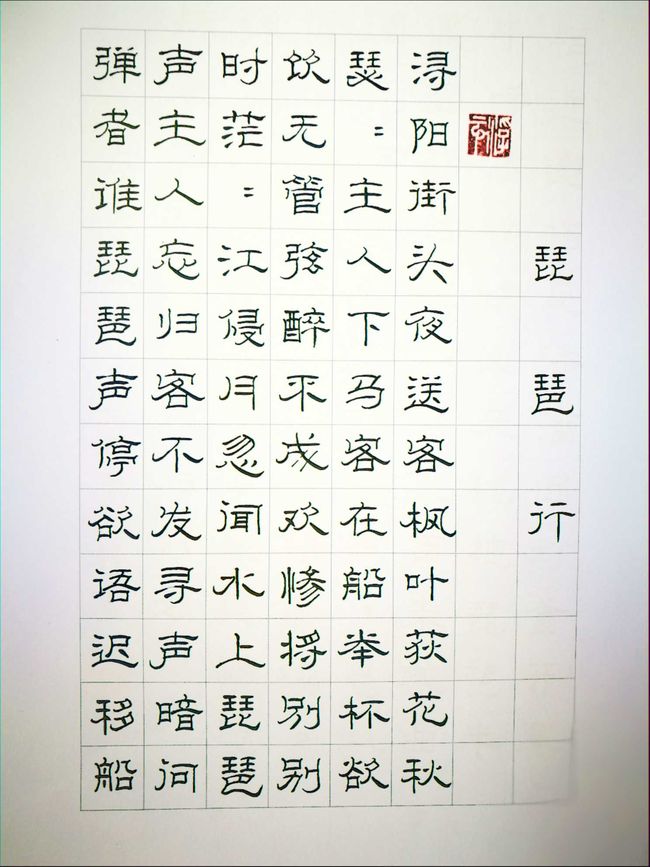 琵琶行
浔阳街头夜送客枫叶荻花秋
瑟=主人下马客在船举杯欲
饮无管弦醉不成欢惨将别别
时茫=江侵月忽闻水上琵琶
声主人忘归客不发寻声暗问
弹者谁琵琶声停欲语迟移船